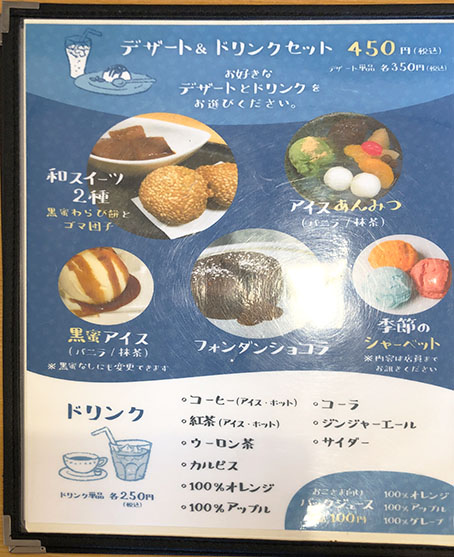 デザート&ドリンクセット 450円(税込)
デザート単品 各350円(税込)
お好きな
デザートとドリンクを
お選びください。
和スイーツ
2種
黒蜜わらび餅と
ゴマ団子
アイスあんみつ
(バニラ/抹茶)
黒蜜アイス
(バニラ/抹茶)
※黒蜜なしにも変更できます
フォンダンショコラ
季節の
シャーベット
※内容は店員まで
お訊きください
ドリンク
ドリンク単品 各250円
(税込)
◦コーヒー(アイス・ホット)
◦紅茶(アイス・ホット)
◦ウーロン茶
◦カルピス
◦100%オレンジ
◦100%アップル
◦コーラ
◦ジンジャーエール
◦サイダー
おこさま向け
パックジュース
100円
100%オレンジ
100%アップル
100%グレープ